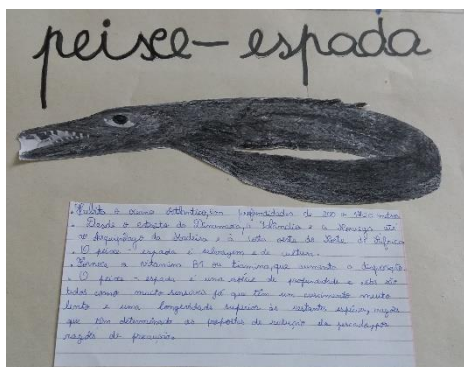 peixe-espada
. Habita o oceano Atlântico, em profundidades de 200 a 1700 metros
. Desde o estreito da Dinamarca, Islândia e a Noruega até
ao Arquipélago da Madeira e à costa oeste do Norte de África.
. O peixe-espada é selvagem e de cultura.
. Fornece a vitamina B1 ou tiamina, que aumenta a disposição.
. O peixe-espada é uma espécie de profundidade e são
tidos como muito sensíveis já que têm um crescimento muito
lento e uma longevidade superior às restantes espécies, razões
que têm determinado as propostas de redução da pescada, por
razões de precaução.